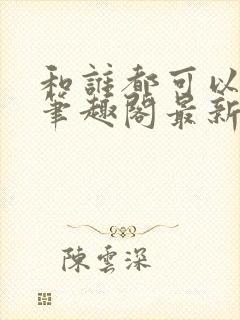 和誰都可以
筆趣閣最新
陳雲深